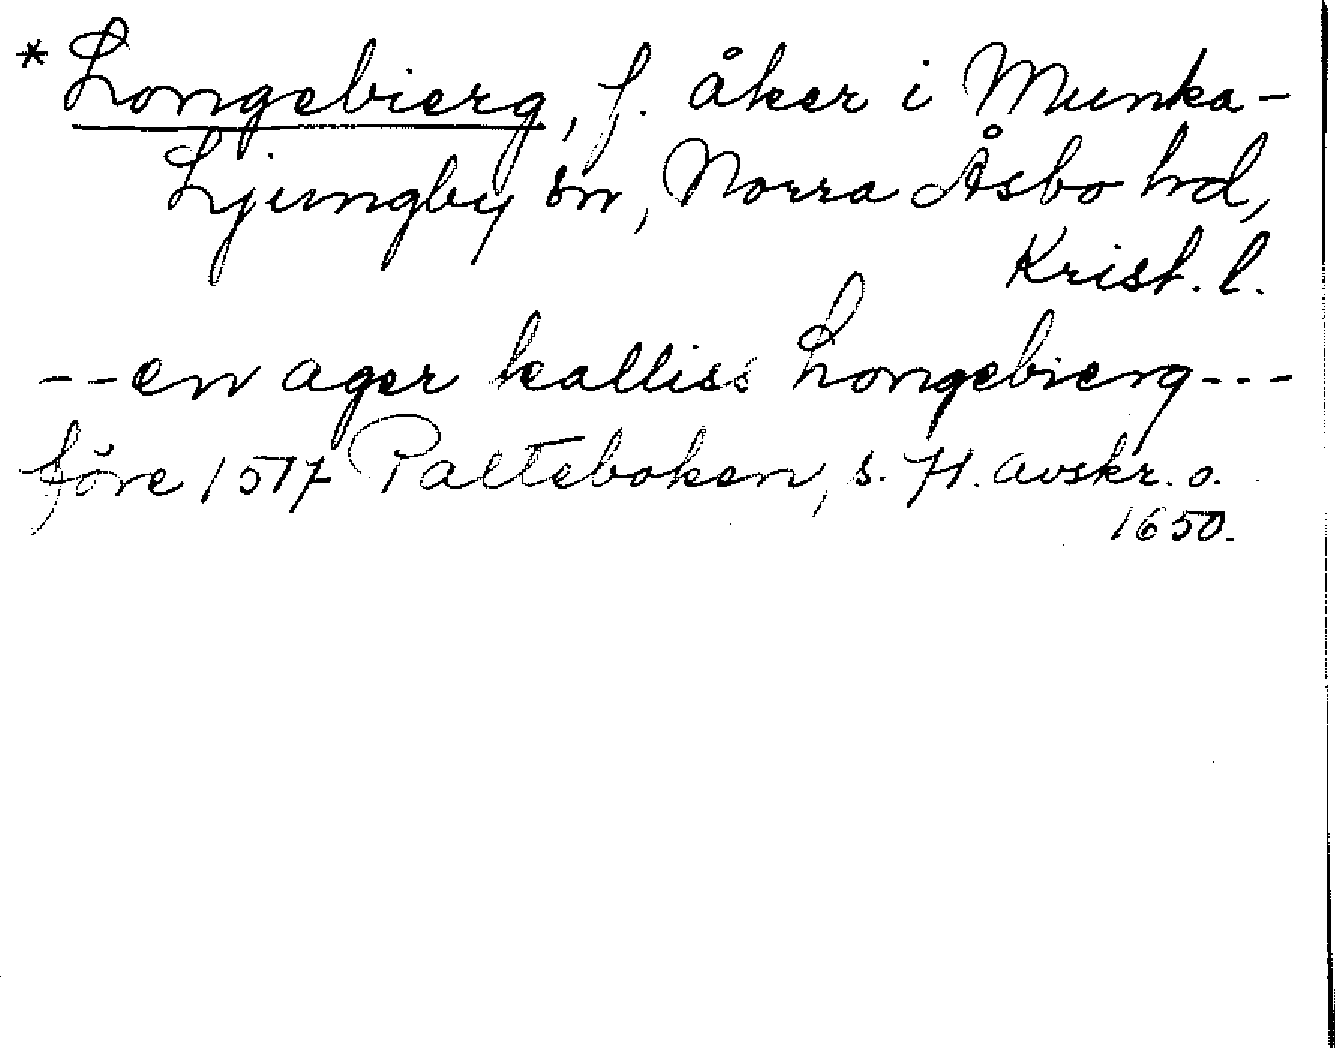 * Longebierg, f. åker i Munka-
Ljungby sn, Norra Åsbo hd,
Krist. l.
-- en ager kalliss Longebierg ---
före 1517 Palteboken, s. 71. avskr. o.
1650.